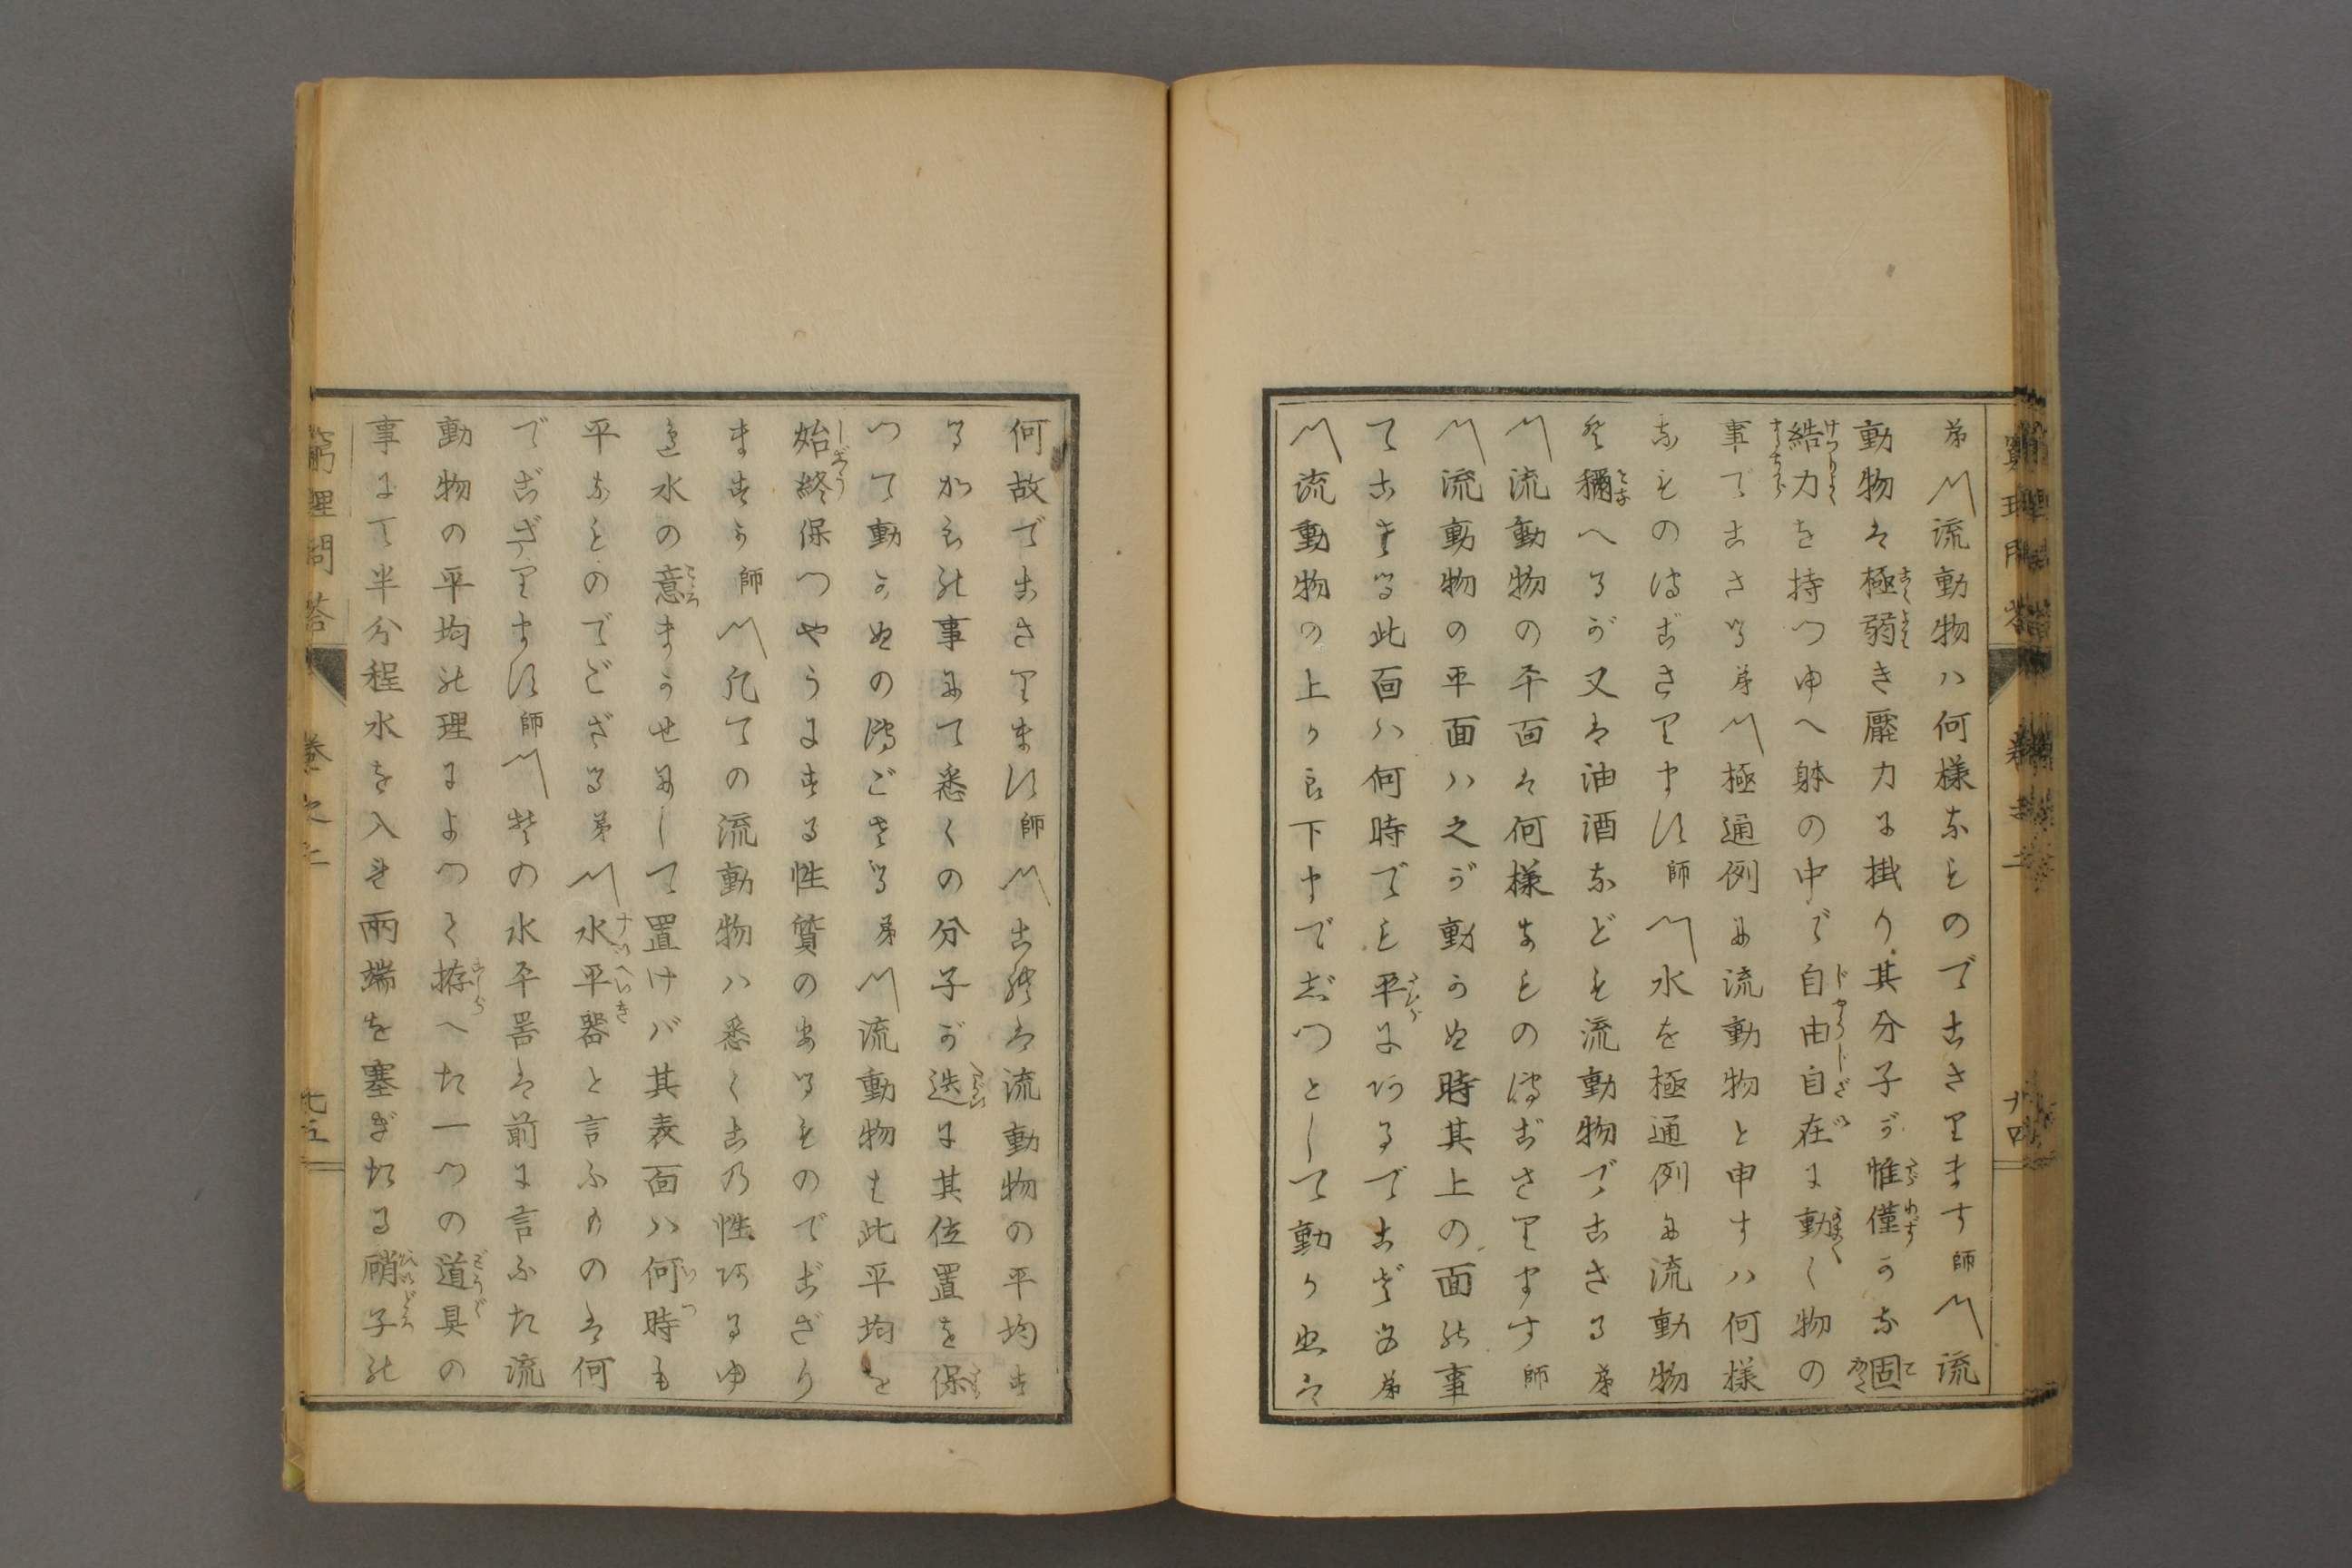 弟〽流動物ハ何様なものでござります師〽流
動物は極弱き壓力に掛り其分子が惟僅かな固
結力を持つゆへ躰の中で自由自在に動く物の
事でござる弟〽極通例に流動物と申すハ何様
なものでござります師〽水を極通例に流動物
と稱へるが又は油酒なども流動物でござる弟
〽流動物の平面は何様なものでござります師
〽流動物の平面ハ之が動かぬ時其上の面の事
でござる此面ハ何時でも平にあるでござる弟
〽流動物の上か
何故でござります師〽これは流動物の平均す
るからの事にて悉くの分子が迭に其位置を保
つて動かぬのでござる弟〽流動物も此平均を
始終保つやうにする性質のあるものでござり
ますか師〽凡ての流動物ハ悉くこの性あるゆ
水の意まかせにして置けバ其表面ハ何時も
平なものでござる弟〽水平器と言ふものは何
でござります師〽其の水平器は前に言ふた流
動物の平均の理によつて拵へた一つの道具の
事にて半分程水を入れ兩端を塞ぎたる硝子の
窮理問答
卷之上